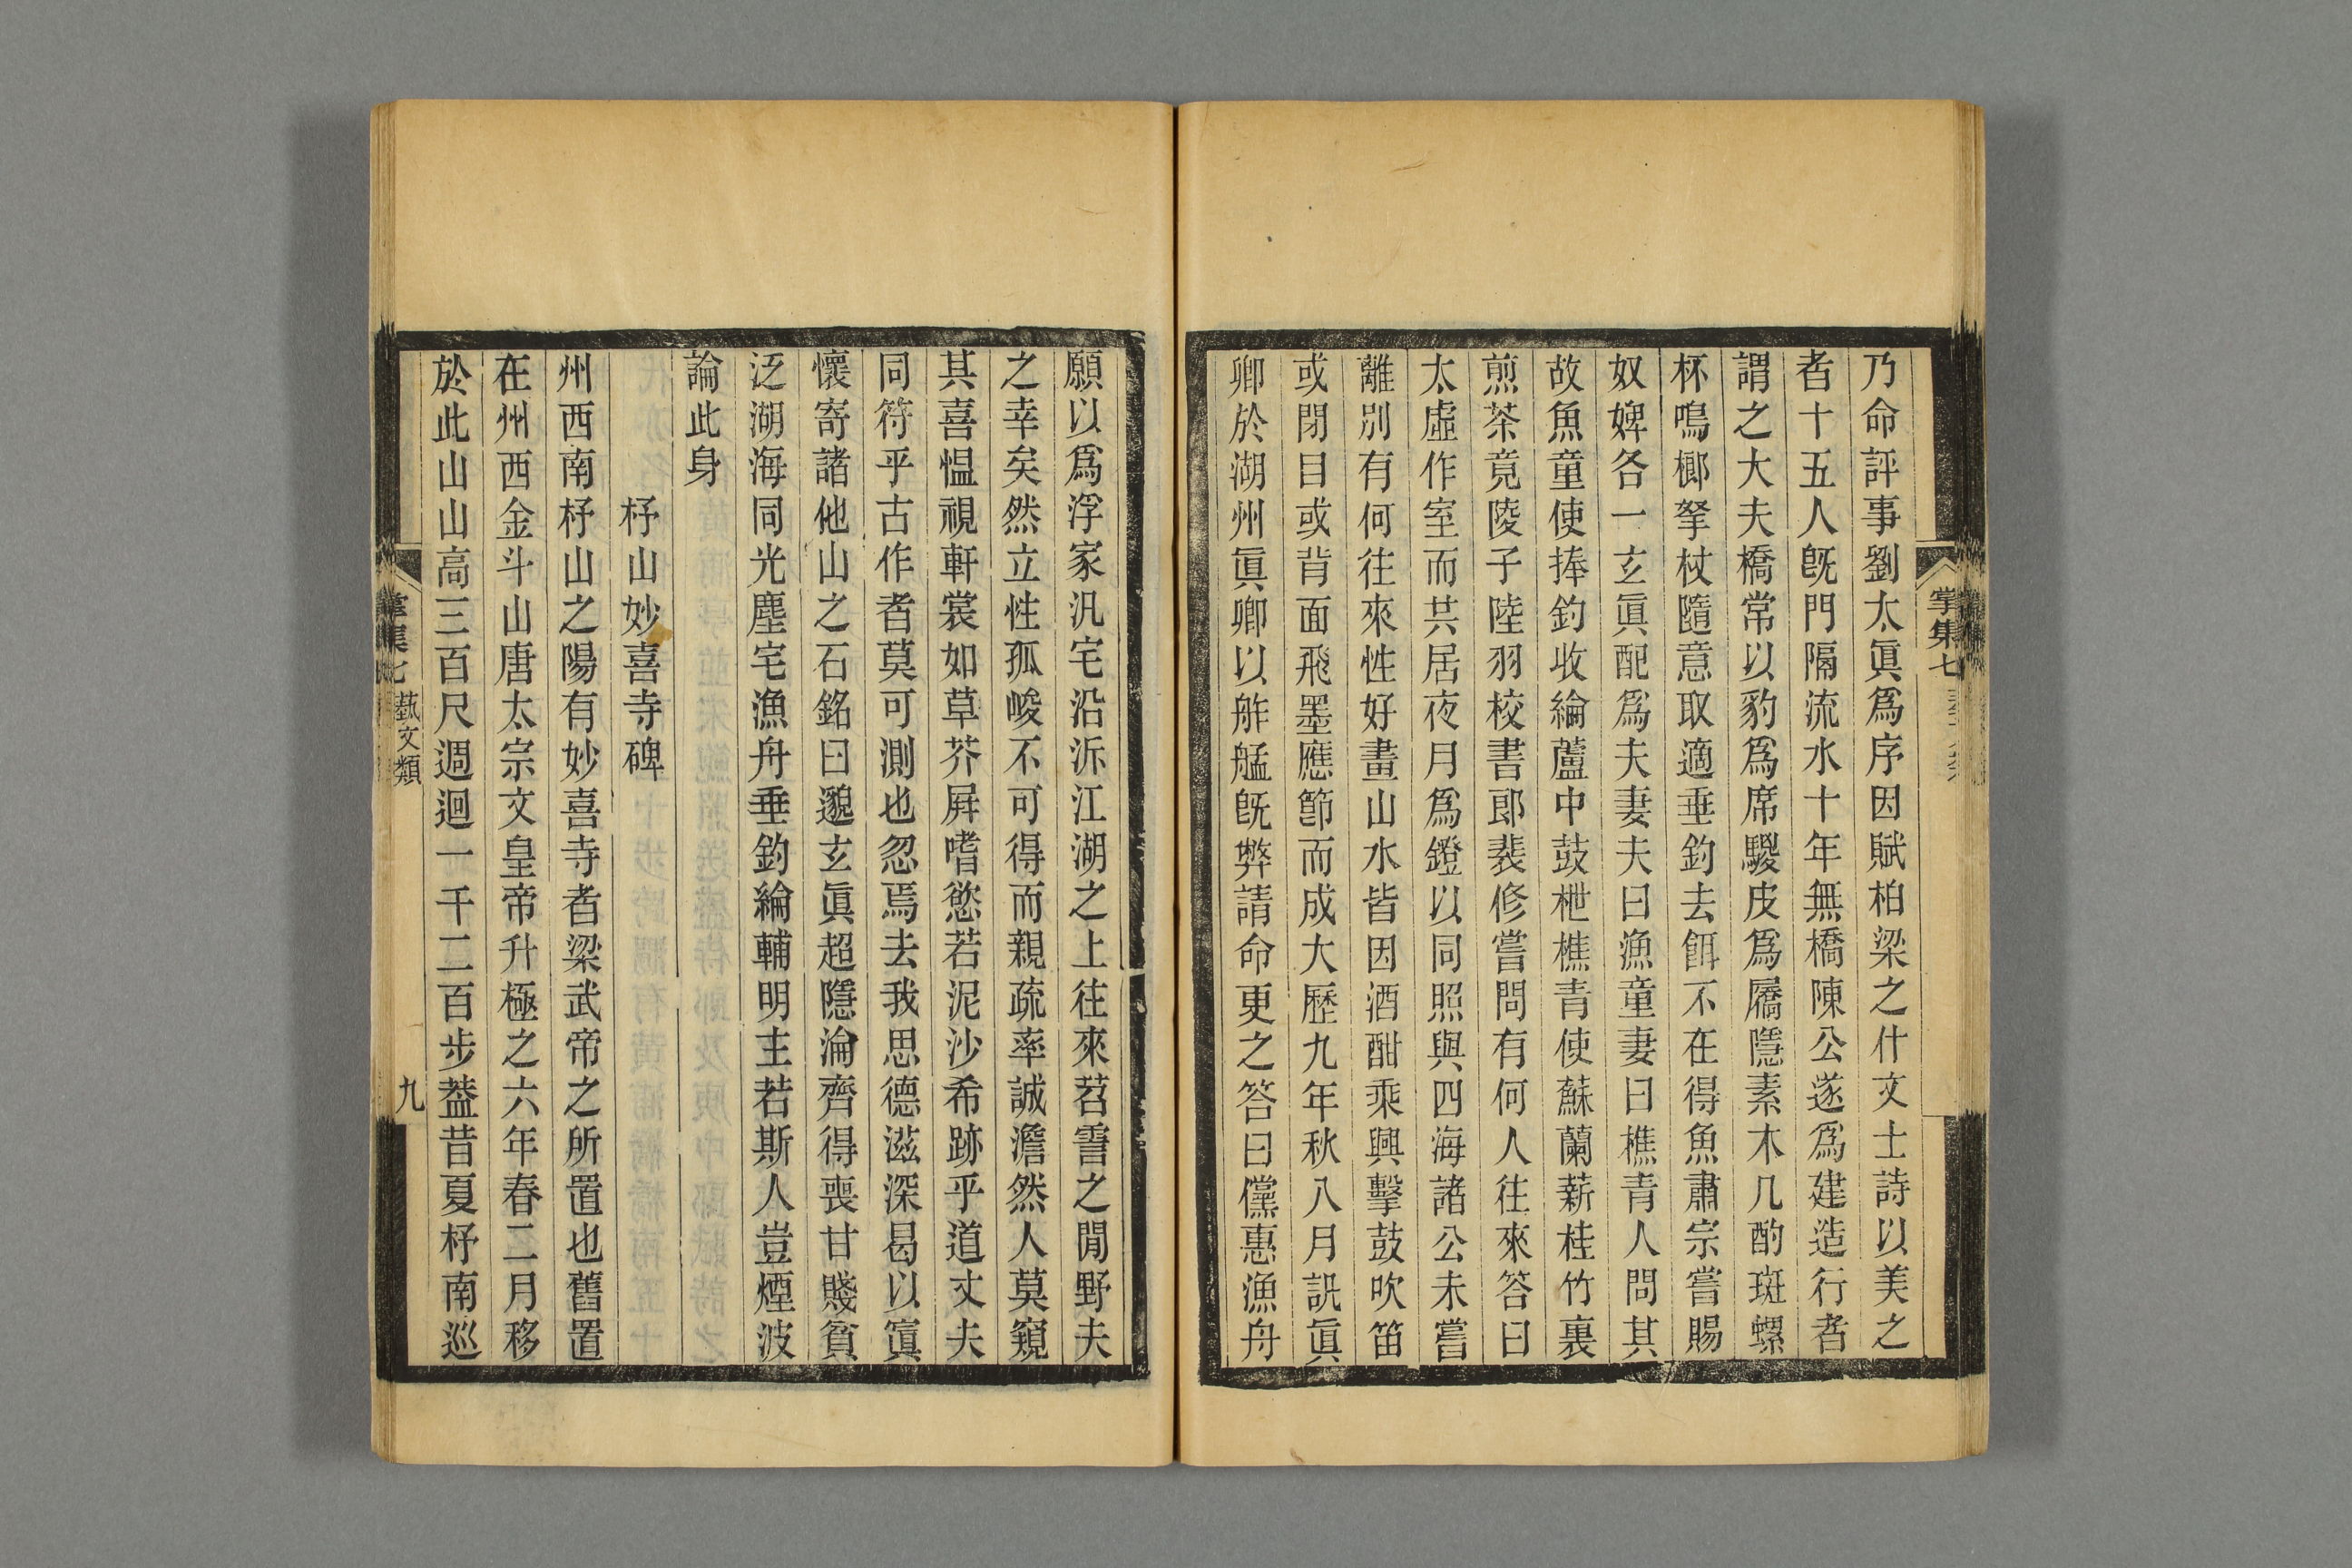 乃命評事劉太眞爲序因賦柏梁之什文士詩以美之
者十五人旣門隔流水十年無橋陳公遂爲建造行者
謂之大夫橋常以豹爲席騣皮爲屩隱素木几酌斑螺
杯鳴榔拏杖隨意取適垂釣去餌不在得魚肅宗嘗賜
奴婢各一玄眞配爲夫妻夫曰漁童妻曰樵青人問其
故魚童使捧釣收綸蘆中鼓枻樵青使蘇蘭薪桂竹裏
煎茶竟陵子陸羽校書郎裴修嘗問有何人往來答曰
太虛作室而共居夜月爲鐙以同照與四海諸公未嘗
離別有何往來性好畫山水皆因酒酣乘興擊鼓吹笛
或閉目或背面飛墨應節而成大歷九年秋八月訊眞
卿於湖州眞卿以舴艋旣弊請命更之答曰儻惠漁舟
掌集七
願以爲浮家汎宅沿泝江湖之上往來苕霅之閒野夫
之幸矣然立性孤峻不可得而親疏率誠澹然人莫窺
其喜慍視軒裳如草芥屛嗜慾若泥沙希跡乎道丈夫
同符乎古作者莫可測也忽焉去我思德滋深曷以寘
懷寄諸他山之石銘曰邈玄眞超隱淪齊得喪甘賤貧
泛湖海同光塵宅漁舟垂釣綸輔明主若斯人豈煙波
論此身
杼山妙喜寺碑
州西南杼山之陽有妙喜寺者梁武帝之所置也舊置
在州西金斗山唐太宗文皇帝升極之六年春二月移
於此山山高三百尺週迴一千二百步葢昔夏杼南巡
掌集七 藝文類 九